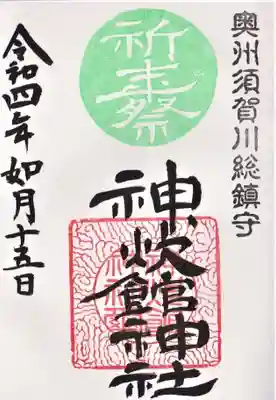 奥州須賀川総鎮守
祈年祭
神炊館神社
令和四年如月十五日